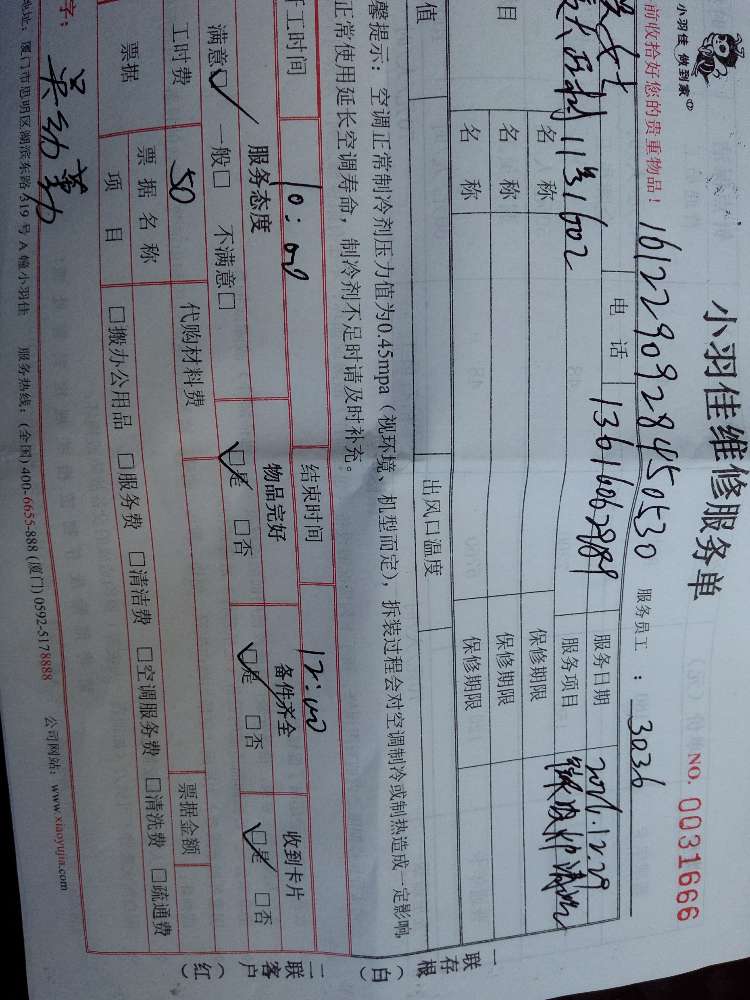 小羽佳维修服务单
小羽佳 做到家
NO. 0031666
前收拾好您的贵重物品！
1612290928450530 服务员工：3036
电话 13616062989 服务日期 2016.12.29
11号1602 服务项目
目 名称 保修期限
名称 保修期限
名称 保修期限
值 出风口温度
馨提示：空调正常制冷剂压力值为0.45mpa（视环境、机型而定），拆装过程会对空调制冷或制热造成一定影响，
正常使用延长空调寿命，制冷剂不足时请及时补充。
工时间 10:00 结束时间 12:00
服务态度 物品完好 备件齐全 收到卡片
满意☑ 一般□ 不满意□ ☑是 □否 ☑是 □否 ☑是 □否
工时费 50 代购材料费 票据金额
票据 票据名称
项目 □搬办公用品 □服务费 □清洁费 □空调服务费 □清洗费 □疏通费
字：
地址：厦门市思明区湖滨东路419号A幢小羽佳 服务热线：(全国) 400-6655-888 (厦门) 0592-5178888 公司网站：www.xiaoyujia.com
一联存根（白）
二联客户（红）